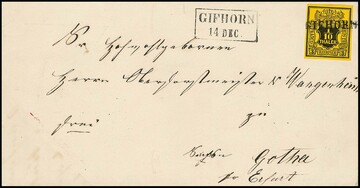 GIFHORN
14 DEC.
GIFHORN
10
THALER
Sr Hochwohlgeboren
Herrn Oberforstmeister v Wangenheim
zu
frei
Gotha
pr Erfurt